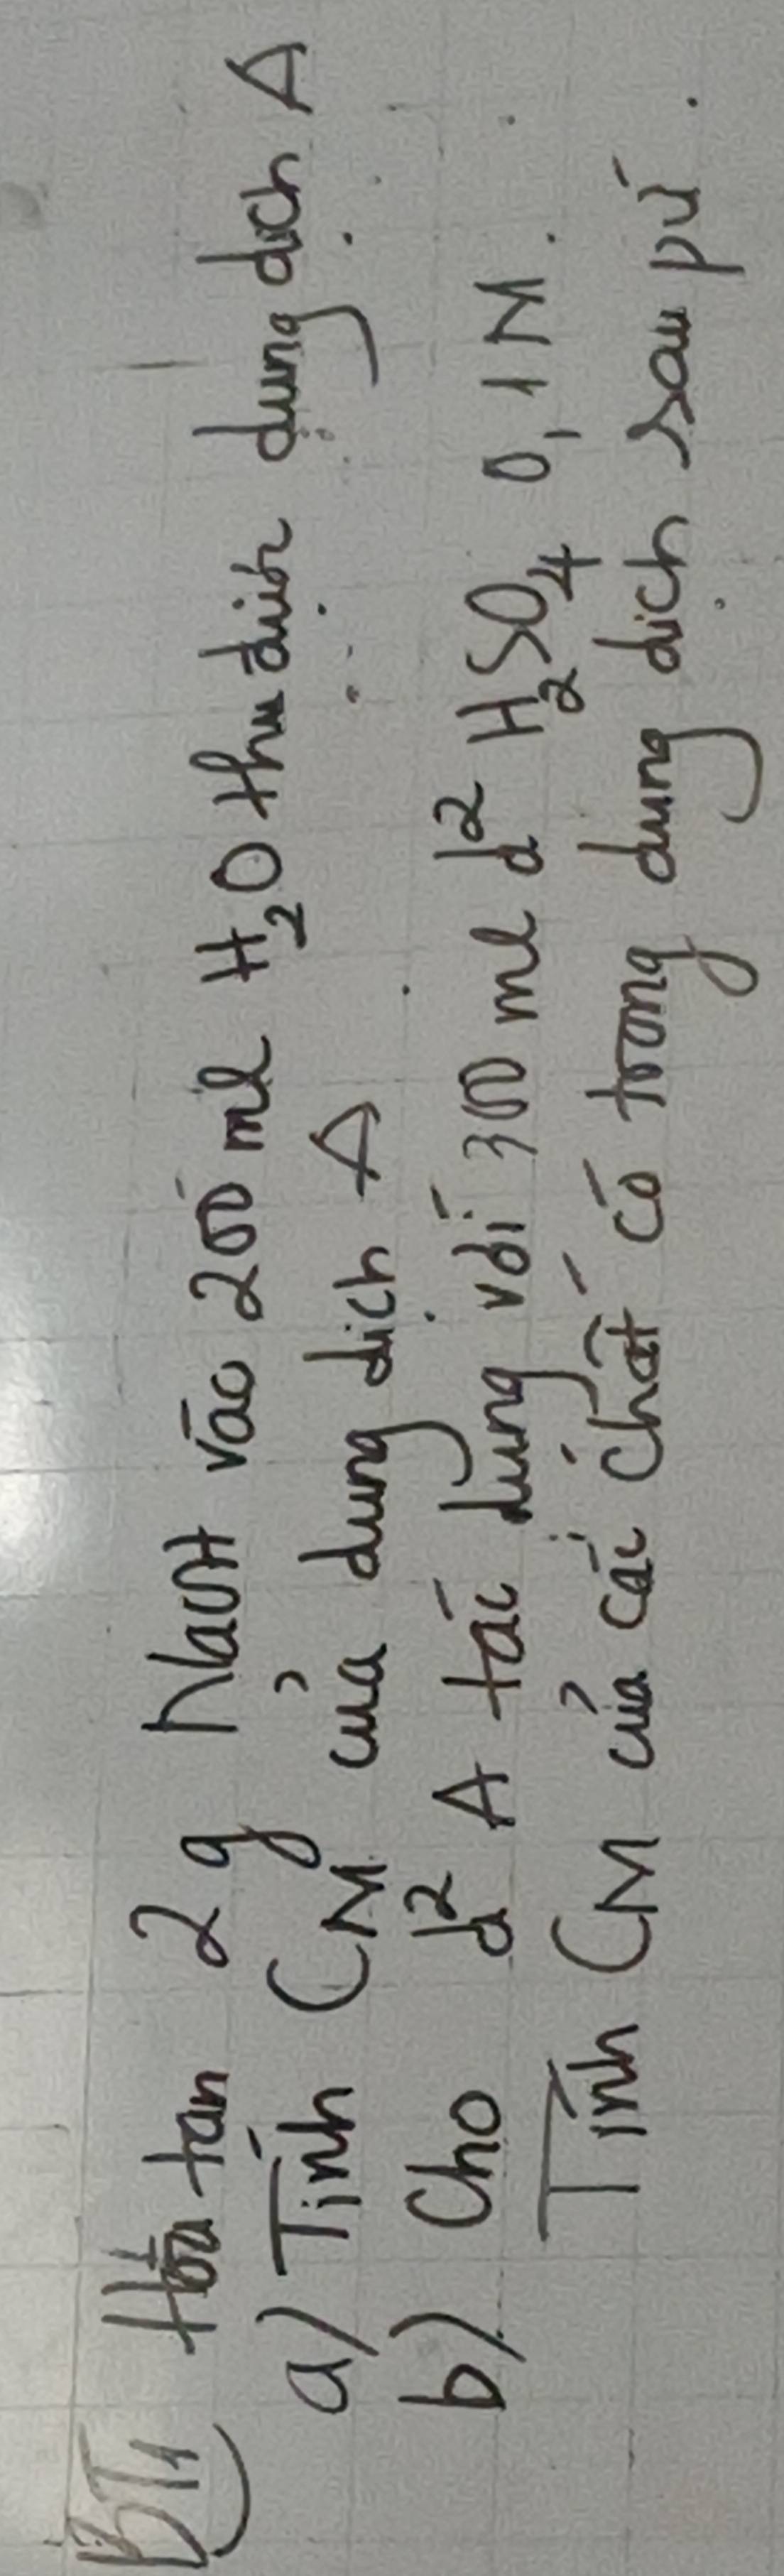 BT1 Hòa tan 2g NaOH vào 200 ml H2O thu được dung dịch A
a) Tính CM của dung dịch A
b) Cho d² A tác dụng với 300 ml d² H2SO4 0,1M.
Tính CM của các chất có trong dung dịch sau pứ.